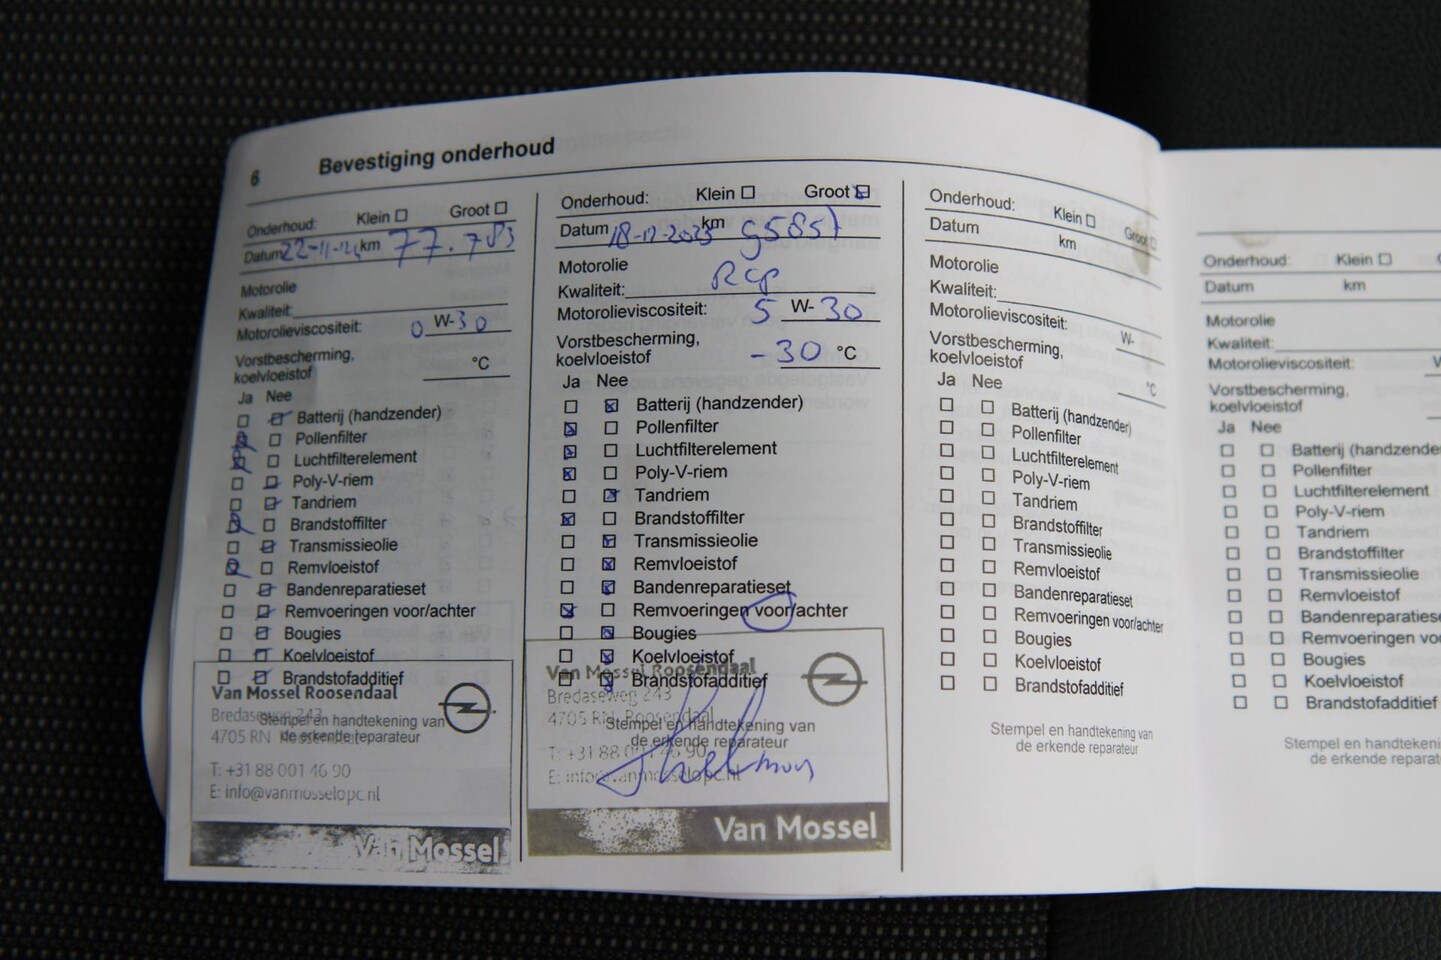 6 Bevestiging onderhoud
Onderhoud: Klein Groot
Datum 22-11-24 km 77.783
Motorolie
Kwaliteit:
Motorolieviscositeit: 0 W-30
Vorstbescherming,
koelvloeistof °C
Ja Nee
Batterij (handzender)
Pollenfilter
Luchtfilterelement
Poly-V-riem
Tandriem
Brandstoffilter
Transmissieolie
Remvloeistof
Bandenreparatieset
Remvoeringen voor/achter
Bougies
Koelvloeistof
Brandstofadditief
Van Mossel Roosendaal
Bredaseweg 243
Stempel en handtekening van
4705 RN Roosendaal
de erkende reparateur
T: +31 88 001 46 90
E: info@vanmosselopc.nl
Van Mossel
Onderhoud: Klein Groot
Datum 18-12-2023 km 95857
Motorolie
Kwaliteit:
Motorolieviscositeit: 5 W-30
Vorstbescherming,
koelvloeistof -30 °C
Ja Nee
Batterij (handzender)
Pollenfilter
Luchtfilterelement
Poly-V-riem
Tandriem
Brandstoffilter
Transmissieolie
Remvloeistof
Bandenreparatieset
Remvoeringen voor/achter
Bougies
Koelvloeistof
Van Mossel Roosendaal
Brandstofadditief
Bredaseweg 243
4705 RN Roosendaal
Stempel en handtekening van
de erkende reparateur
T: +31 88 001 46 90
E: info@vanmosselopc.nl
Van Mossel
Onderhoud: Klein Groot
Datum km
Motorolie
Kwaliteit:
Motorolieviscositeit: W-
Vorstbescherming,
koelvloeistof °C
Ja Nee
Batterij (handzender)
Pollenfilter
Luchtfilterelement
Poly-V-riem
Tandriem
Brandstoffilter
Transmissieolie
Remvloeistof
Bandenreparatieset
Remvoeringen voor/achter
Bougies
Koelvloeistof
Brandstofadditief
Stempel en handtekening van
de erkende reparateur
Onderhoud: Klein
Datum km
Motorolie
Kwaliteit:
Motorolieviscositeit:
Vorstbescherming,
koelvloeistof
Ja Nee
Batterij (handzende
Pollenfilter
Luchtfilterelement
Poly-V-riem
Tandriem
Brandstoffilter
Transmissieolie
Remvloeistof
Bandenreparatiese
Remvoeringen vo
Bougies
Koelvloeistof
Brandstofadditief
Stempel en handtekeni
de erkende reparat